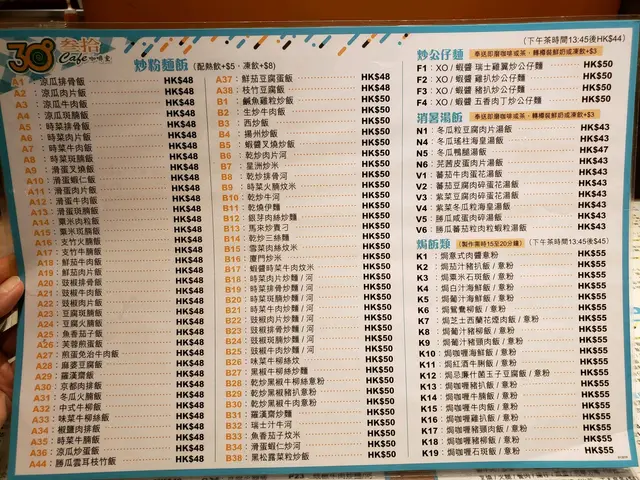 30
叁拾
Cafe 咖啡室
炒粉麵飯 (配熱飲+$5，凍飲+$8)
A1 涼瓜排骨飯 HK$48
A2 涼瓜肉片飯 HK$48
A3 涼瓜牛肉飯 HK$48
A4 涼瓜斑腩飯 HK$48
A5 時菜排骨飯 HK$48
A6 時菜肉片飯 HK$48
A7 時菜牛肉飯 HK$48
A8 時菜斑腩飯 HK$48
A9 滑蛋叉燒飯 HK$48
A10 滑蛋蝦仁飯 HK$48
A11 滑蛋肉片飯 HK$48
A12 滑蛋牛肉飯 HK$48
A13 滑蛋斑腩飯 HK$48
A14 粟米肉粒飯 HK$48
A15 粟米斑腩飯 HK$48
A16 支竹火腩飯 HK$48
A17 支竹牛腩飯 HK$48
A18 鮮茄牛肉飯 HK$48
A19 鮮茄肉片飯 HK$48
A20 豉椒排骨飯 HK$48
A21 豉椒牛肉飯 HK$48
A22 豉椒肉片飯 HK$48
A23 豆腐斑腩飯 HK$48
A24 豆腐火腩飯 HK$48
A25 魚香茄子飯 HK$48
A26 芙蓉煎蛋飯 HK$48
A27 煎蛋免治牛肉飯 HK$48
A28 麻婆豆腐飯 HK$48
A29 羅漢齋飯 HK$48
A30 京都肉排飯 HK$48
A31 冬瓜火腩飯 HK$48
A32 中式牛柳飯 HK$48
A33 味菜牛柳絲飯 HK$48
A34 椒鹽肉排飯 HK$48
A35 時菜牛腩飯 HK$48
A36 涼瓜炒蛋飯 HK$48
A44 勝瓜雲耳枝竹飯 HK$48
A37 鮮茄豆腐蛋飯 HK$48
A38 枝竹豆腐飯 HK$48
B1 鹹魚雞粒炒飯 HK$50
B2 生炒牛肉飯 HK$50
B3 西炒飯 HK$50
B4 揚州炒飯 HK$50
B5 蝦醬叉燒炒飯 HK$50
B6 乾炒肉片河 HK$50
B7 星洲炒米 HK$50
B8 乾炒排骨河 HK$50
B9 時菜火腩炆米 HK$50
B10 乾炒牛河 HK$50
B11 乾燒伊麵 HK$50
B12 銀芽肉絲炒麵 HK$50
B13 馬來炒貴刁 HK$50
B14 乾炒三絲麵 HK$50
B15 雪菜肉絲炆米 HK$50
B16 廈門炒米 HK$50
B17 蝦醬時菜牛肉炆米 HK$50
B18 時菜肉片炒麵 / 河 HK$50
B19 時菜排骨炒麵 / 河 HK$50
B20 時菜斑腩炒麵 / 河 HK$50
B21 時菜牛肉炒麵 / 河 HK$50
B22 豉椒肉片炒麵 / 河 HK$50
B23 豉椒排骨炒麵 / 河 HK$50
B24 豉椒斑腩炒麵 / 河 HK$50
B25 豉椒牛肉炒麵 / 河 HK$50
B26 味菜牛柳絲炆 HK$50
B27 黑椒牛柳絲炒麵 HK$50
B28 乾炒黑椒牛柳絲意粉 HK$50
B29 乾炒黑椒豬扒意粉 HK$50
B30 乾炒黑椒牛肉意粉 HK$50
B31 羅漢齋炒麵 HK$50
B32 瑞士汁牛河 HK$50
B33 魚香茄子炆米 HK$50
B34 滑蛋蝦仁炒河 HK$50
B38 黑松露菜粒炒飯 HK$50
(下午茶時間13:45後HK$44)
炒公仔麵 奉送即磨咖啡或茶，轉樽裝鮮奶或凍飲+$3
F1 : XO / 蝦醬 瑞士雞翼炒公仔麵 HK$50
F2 : XO / 蝦醬 雞扒炒公仔麵 HK$50
F3 : XO / 蝦醬 豬扒炒公仔麵 HK$50
F4 : XO / 蝦醬 五香肉丁炒公仔麵 HK$50
消暑湯飯 奉送即磨咖啡或茶，轉樽裝鮮奶或凍飲+$3
N1 : 冬瓜粒豆腐肉片湯飯 HK$43
N4 : 冬瓜瑤柱海皇湯飯 HK$43
N5 : 冬瓜鴨腿湯飯 HK$47
N6 : 芫茜皮蛋肉片湯飯 HK$43
V1 : 蕃茄牛肉蛋花湯飯 HK$43
V2 : 蕃茄豆腐肉碎蛋花湯飯 HK$43
V3 : 紫菜豆腐肉碎蛋花湯飯 HK$43
V4 : 紫菜冬瓜粒海皇湯飯 HK$43
V5 : 勝瓜咸蛋肉碎湯飯 HK$43
V6 : 蕃茄豆腐粒肉粒蝦粒湯飯 HK$43
焗飯類 (製作需時15至20分鐘) (下午茶時間13:45後$45)
K1 : 焗意式肉醬意粉 HK$55
K2 : 焗茄汁豬扒飯 / 意粉 HK$55
K3 : 焗粟米石斑飯 / 意粉 HK$55
K4 : 焗白汁海鮮飯 / 意粉 HK$55
K5 : 焗葡汁海鮮飯 / 意粉 HK$55
K6 : 焗鴛鴦柳飯 / 意粉 HK$55
K7 : 焗芝士西蘭花煙肉飯 / 意粉 HK$55
K8 : 焗葡汁豬柳飯 / 意粉 HK$55
K9 : 焗葡汁豬頸肉飯 / 意粉 HK$55
K10 : 焗咖喱海鮮飯 / 意粉 HK$55
K11 : 焗紅酒牛脷飯 / 意粉 HK$55
K12 : 焗忌廉什菌玉子豆腐飯 / 意粉 HK$55
K13 : 焗咖喱豬扒飯 / 意粉 HK$55
K14 : 焗咖喱牛腩飯 / 意粉 HK$55
K15 : 焗咖喱牛肉飯 / 意粉 HK$55
K16 : 焗咖喱雞扒飯 / 意粉 HK$55
K17 : 焗咖喱豬頸肉飯 / 意粉 HK$55
K18 : 焗咖喱豬柳飯 / 意粉 HK$55
K19 : 焗咖喱石斑飯 / 意粉 HK$55